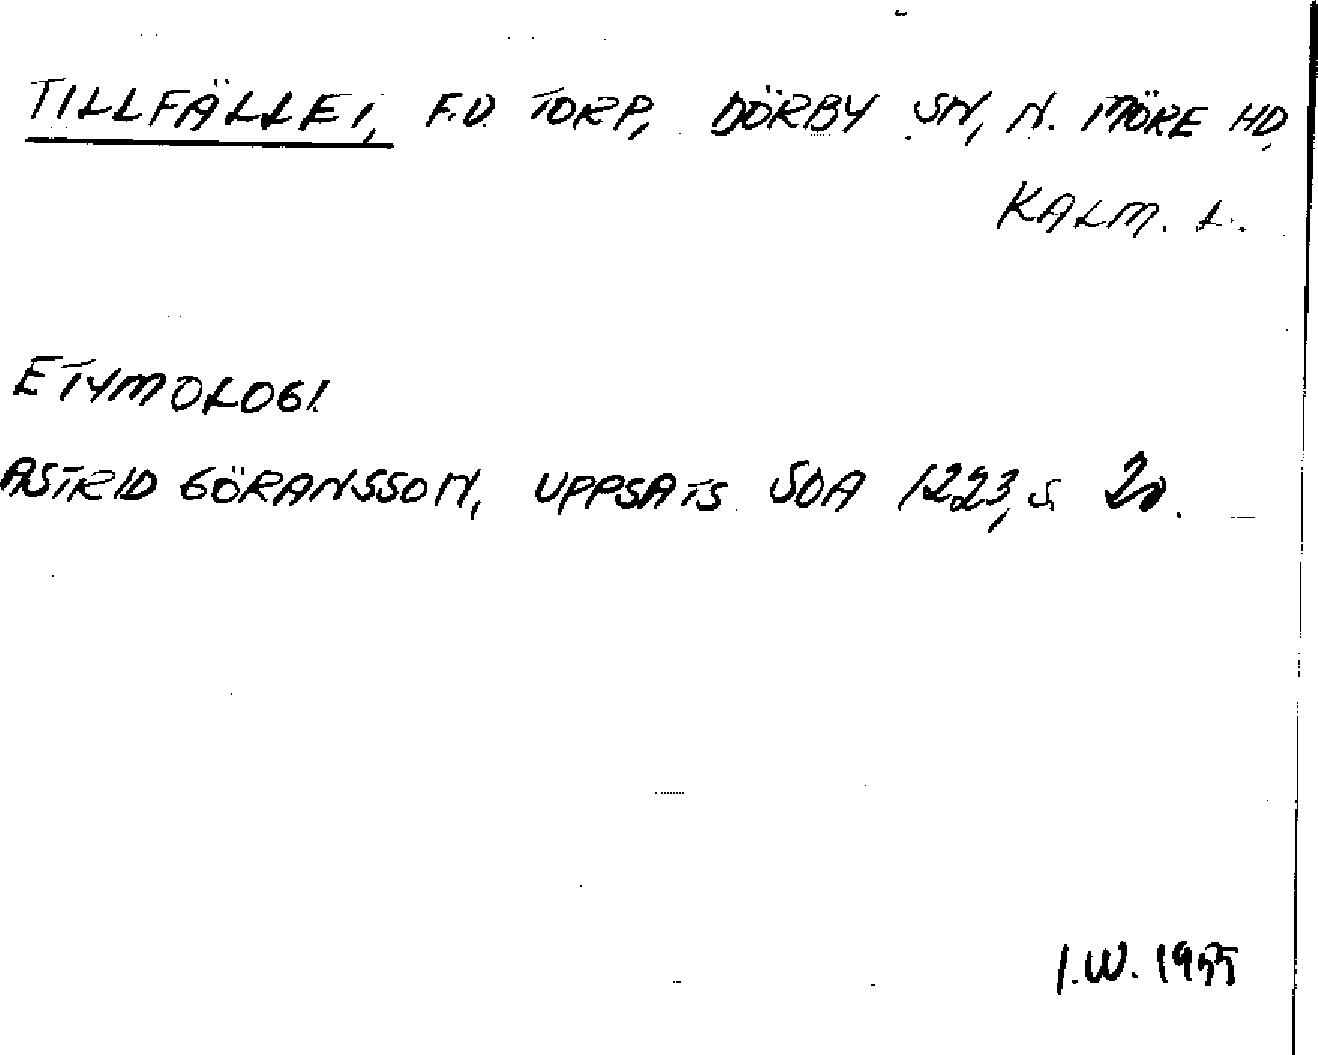 TILLFÄLLE1, F.D. TORP, DÖRBY SN, N. MÖRE HD,
KALM. L.
ETYMOLOGI
ASTRID GÖRANSSON, UPPSATS SOA 1223, S.
I.W. 1955